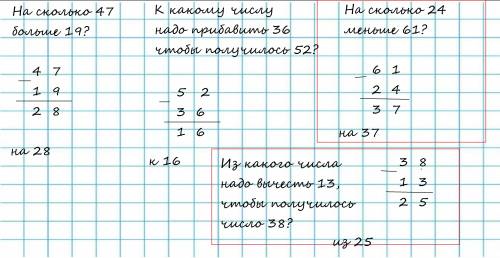 На сколько 47
больше 19?
4 7
– 1 9
2 8
на 28
К какому числу
надо прибавить 36
чтобы получилось 52?
5 2
– 3 6
1 6
к 16
На сколько 24
меньше 61?
6 1
– 2 4
3 7
на 37
Из какого числа
надо вычесть 13,
чтобы получилось
число 38?
3 8
– 1 3
2 5
из 25